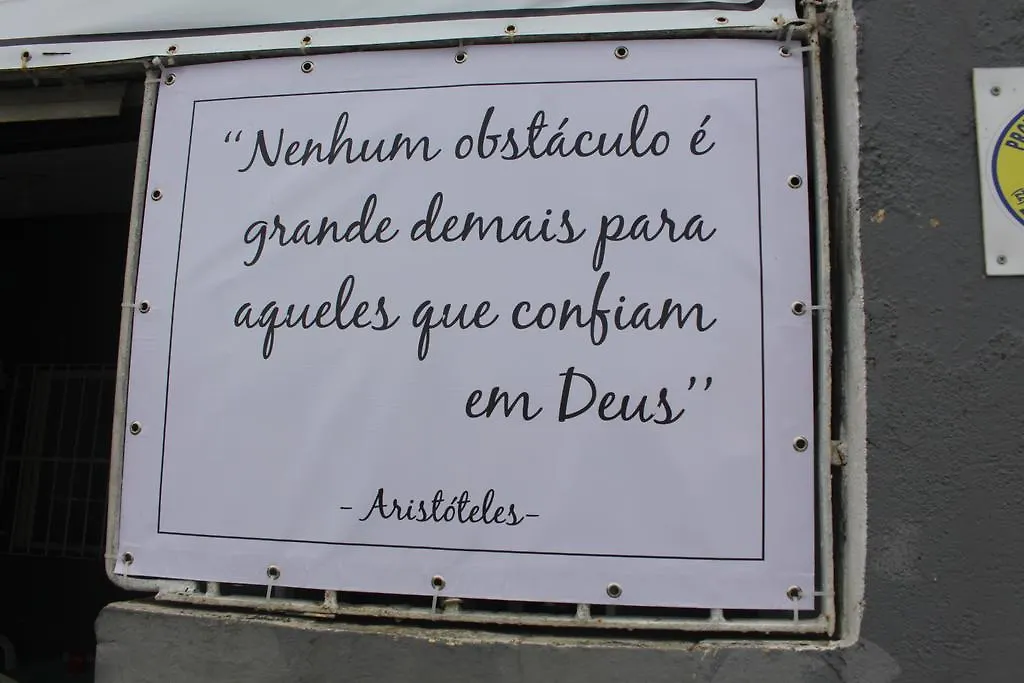 “Nenhum obstáculo é
grande demais para
aqueles que confiam
em Deus”
- Aristóteles-